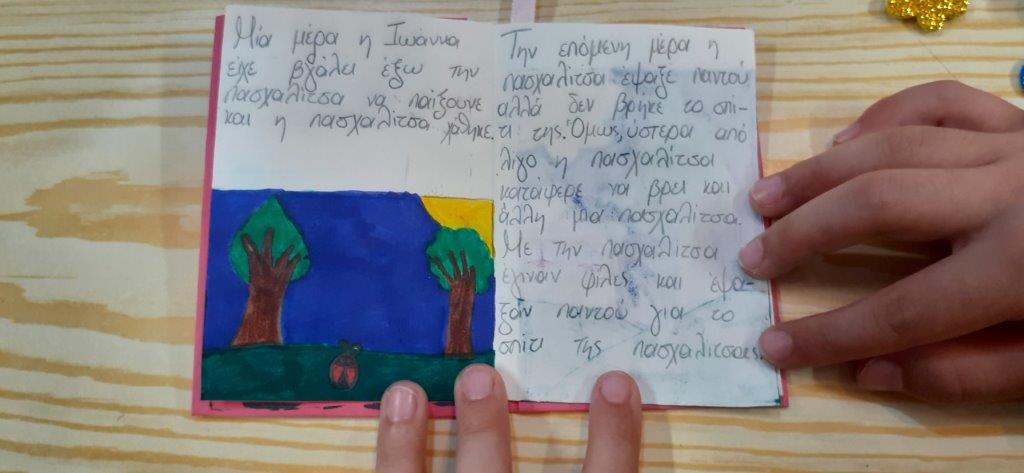 Μία μέρα η Ιωάννα
είχε βγάλει έξω την
πασχαλίτσα να παίξουνε
και η πασχαλίτσα χάθηκε.
Την επόμενη μέρα η
πασχαλίτσα έψαξε παντού
αλλά δεν βρήκε το σπί-
τι της. Όμως, ύστερα από
λίγο η πασχαλίτσα
κατάφερε να βρει και
άλλη μια πασχαλίτσα.
Με την πασχαλίτσα
έγιναν φίλες και έψα-
ξαν παντού για το
σπίτι της πασχαλίτσας.